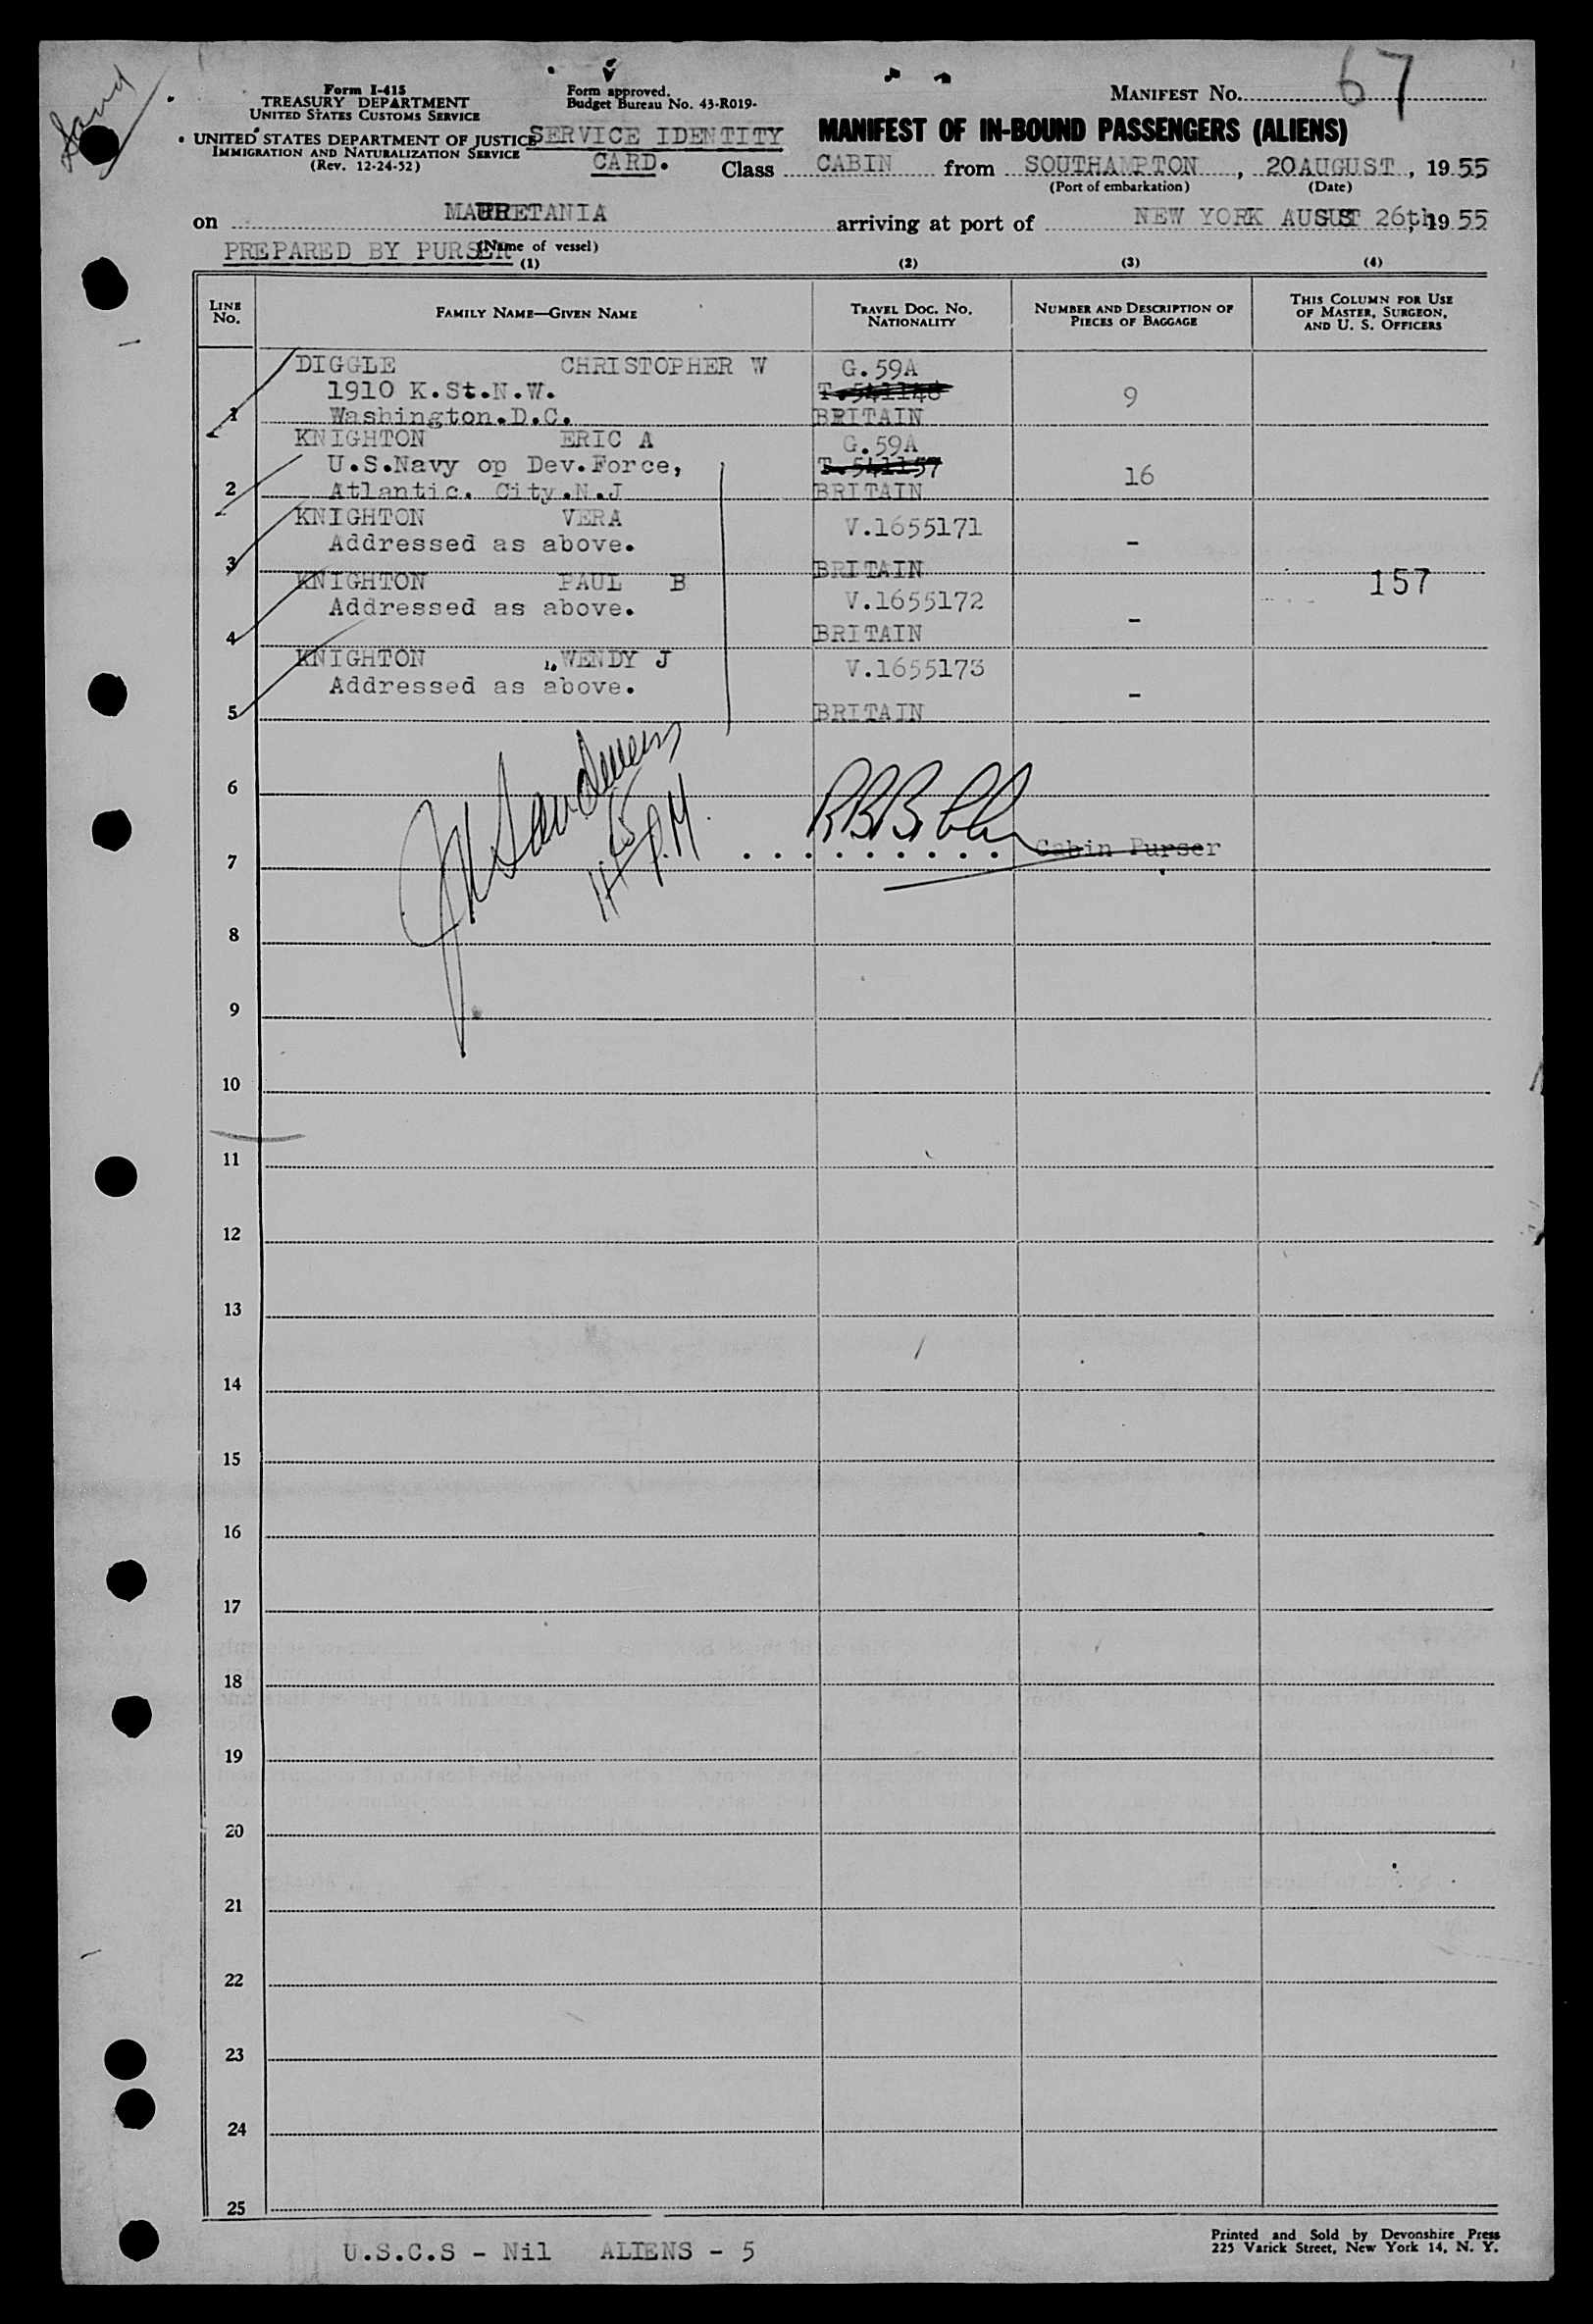 67
Form I-415
TREASURY DEPARTMENT
UNITED STATES CUSTOMS SERVICE
Form approved.
Budget Bureau No. 43-R019-
MANIFEST No.
UNITED STATES DEPARTMENT OF JUSTICE
IMMIGRATION AND NATURALIZATION SERVICE
(Rev. 12-24-52)
SERVICE IDENTITY
CARD.
MANIFEST OF IN-BOUND PASSENGERS (ALIENS)
Class CABIN from SOUTHAMPTON, 20 AUGUST, 1955
(Port of embarkation) (Date)
on MAURETANIA arriving at port of NEW YORK AUGUST 26th, 1955
PREPARED BY PURSER (Name of vessel)
(1) (2) (3) (4)
LINE No. FAMILY NAME—GIVEN NAME TRAVEL DOC. NO. NATIONALITY NUMBER AND DESCRIPTION OF PIECES OF BAGGAGE THIS COLUMN FOR USE OF MASTER, SURGEON, AND U. S. OFFICERS
DIGGLE CHRISTOPHER W G.59A
1910 K.St.N.W. T.541148 9
1 Washington.D.C. BRITAIN
KNIGHTON ERIC A G.59A
U.S.Navy op Dev.Force, T.541157 16
2 Atlantic. City.N.J BRITAIN
KNIGHTON VERA V.1655171
Addressed as above. -
3 BRITAIN
KNIGHTON PAUL B V.1655172 157
Addressed as above. -
4 BRITAIN
KNIGHTON WENDY J V.1655173
Addressed as above. -
5 BRITAIN
6
7 . . . . . . . . . Cabin Purser
8
9
10
11
12
13
14
15
16
17
18
19
20
21
22
23
24
25
U.S.C.S - Nil ALIENS - 5
Printed and Sold by Devonshire Press
225 Varick Street, New York 14, N. Y.